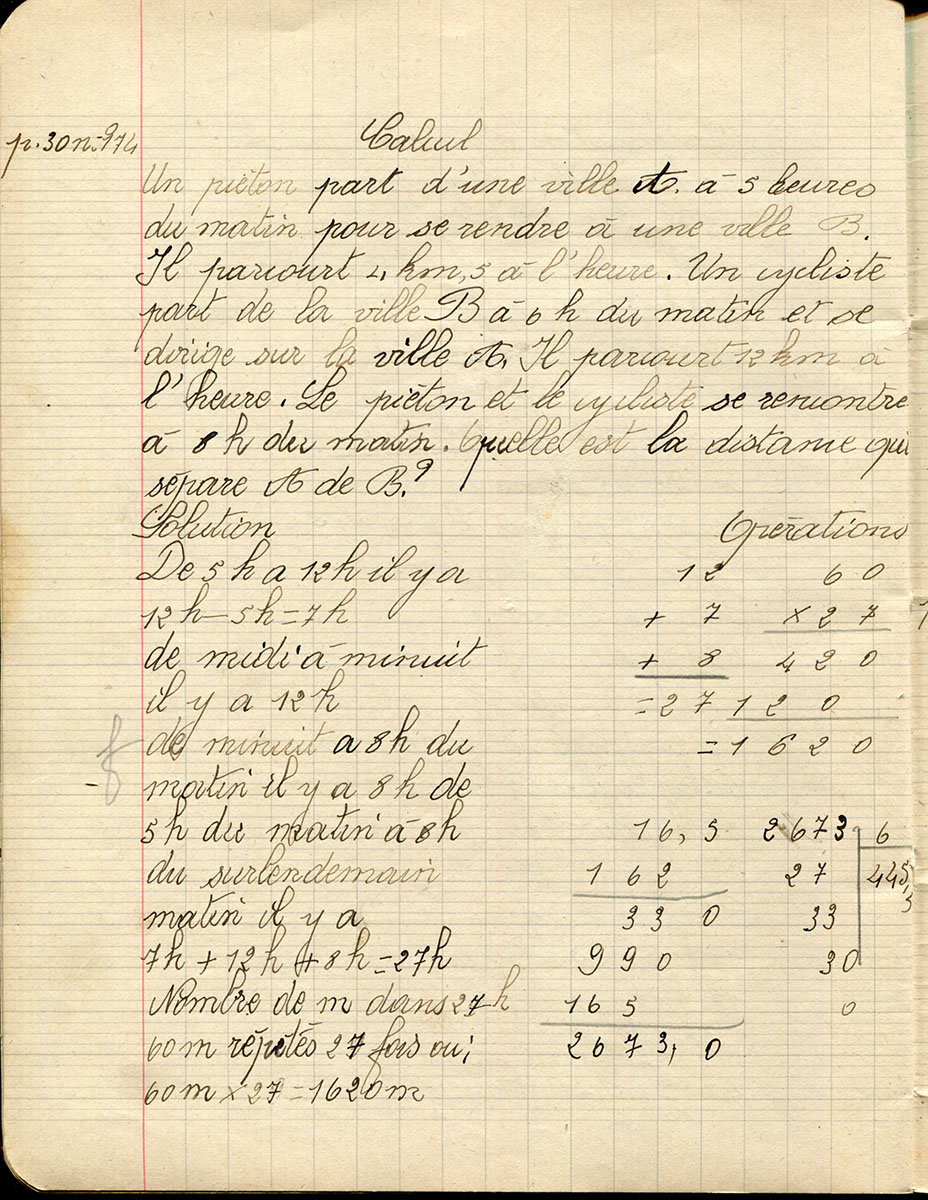 Calcul
p. 30 n: 974
Un piéton part d'une ville A. à 5 heures
du matin pour se rendre à une ville B.
Il parcourt 4 km,5 à l'heure. Un cycliste
part de la ville B à 6 h du matin et se
dirige sur la ville A. Il parcourt 12 km à
l'heure. Le piéton et le cycliste se rencontre
à 8 h du matin. Quelle est la distance qui
sépare A de B.?
Solution Opérations
De 5 h a 12 h il y a 12 60
12 h - 5 h = 7 h + 7 x 27
de midi à minuit + 8 420
il y a 12 h = 27 120
de minuit a 8 h du = 1620
matin il y a 8 h de
5 h du matin à 8 h 16,5 2673 6
du surlendemain 162 27 445,3
matin il y a 330 33
7 h + 12 h + 8 h = 27 h 990 30
Nombre de m dans 27 h 165 0
60 m répétés 27 fois ou; 2673,0
60 m x 27 = 1620 m